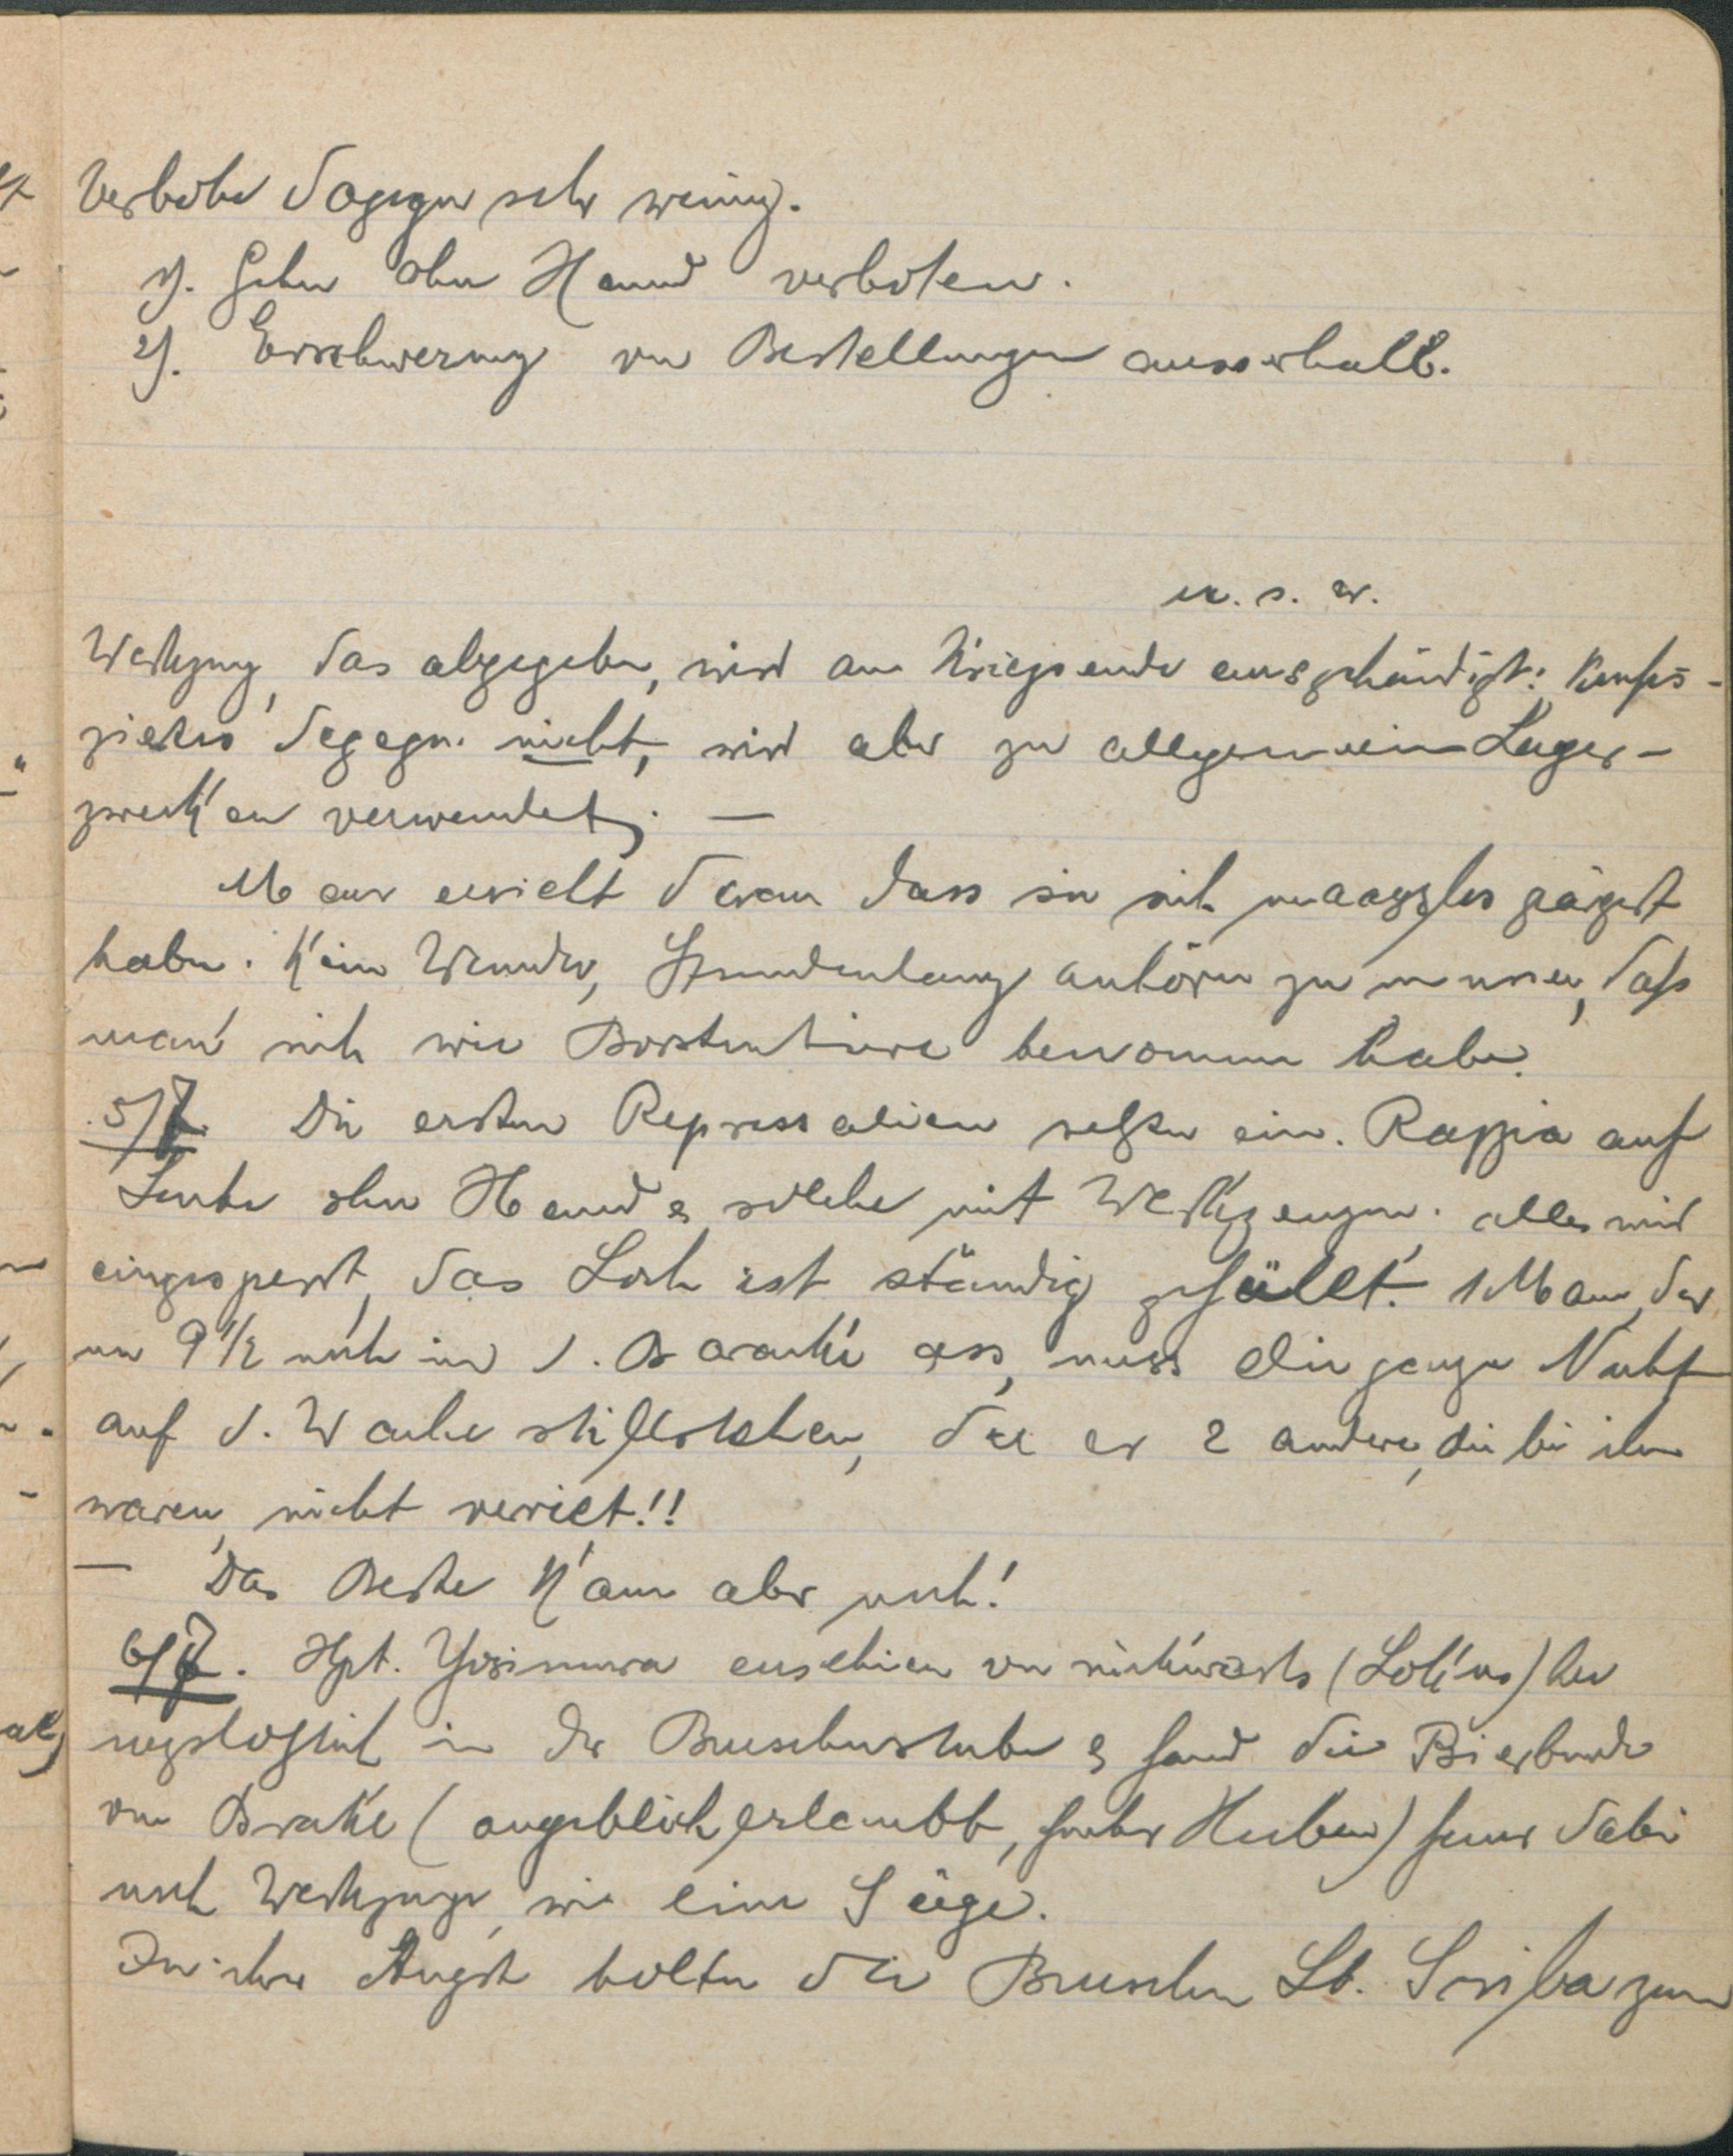 Verbote dagegen sehr wenig.
1). Gehen ohne Hemd verboten.
2). Erschwerung von Bestellungen ausserhalb.
u. s. w.
Werkzeug, das abgegeben, wird am Kriegsende ausgehändigt: Konfis-
ziertes dagegen nicht, wird aber zu allgemeinen Lager-
zwecken verwendet. —
Man ersieht daran dass sie sich maasslos geärgert
haben. Kein Wunder, Stundenlang anhören zu müssen, dass
man sich wie Borstentiere benommen habe.
5/7. Die ersten Repressalien setzen ein. Razzia auf
Leute ohne Hemd & solche mit Werkzeugen. alles wird
eingesperrt, das Loch ist ständig gefüllt. 1 Mann, der
um 9 1/2 noch in d. Baracke ass, muss die ganze Nacht
auf d. Wache stillstehen, da er 2 andere, die bei ihm
waren, nicht verriet!!
— Das Beste kam aber noch!
6/7. Hpt. Yosimura erschien von rückwärts (Lokus) her
urplötzlich in der Burschenstube & fand die Bierbude
von Brake (angeblich erlaubt, früher Huben) ferner dabei
noch Werkzeuge, wie eine Säge.
In ihrer Angst holten die Burschen Lt. Scriba zum